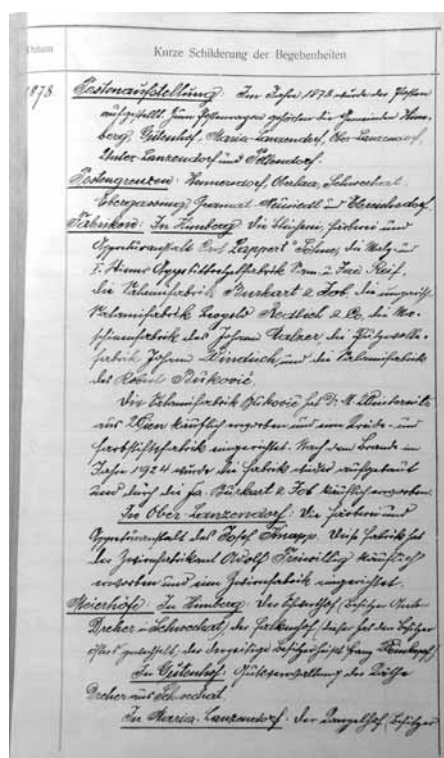 Datum
Kurze Schilderung der Begebenheiten
1878
Postenaufstellung: Im Jahre 1878 wurde der Posten
aufgestellt. Zum Postenrayon gehörten die Gemeinden Him-
berg, Gutenhof, Maria-Lanzendorf, Ober-Lanzendorf,
Unter Lanzendorf und Pellendorf.
Postengrenzen: Hennersdorf, Oberlaa, Schwechat,
Ebergassing, Gramat-Neusiedl und
Fabriken: In Himberg die Bleicherei, Färberei und
Appreturanstalt Lappert Söhne, die Malz und
I. Wiener
die Salamifabrik Burkart & Fob, die ungarische
Salamifabrik Leopold & Co, die Ma-
schinenfabrik des Johann die
fabrik Johann Windisch und die Salamifabrik
des Robert Buković.
Die Salamifabrik Buković hat D. M.
aus Wien käuflich erworben und eine Kreide- und
Farbstiftfabrik eingerichtet. Nach dem Brande im
Jahre 1924 wurde die Fabrik wieder aufgebaut
und durch die Fa. Burkart & Fob käuflich erworben.
In Ober-Lanzendorf: Die Färberei und
Appreturanstalt des Josef Knapp. Diese Fabrik hat
der Zwirnfabrikant Adolf käuflich
erworben und eine Zwirnfabrik eingerichtet.
Meierhöfe: In Himberg: Der (Besitzer
Dreher in Schwechat), der Falkenhof (dieser hat den Besitzer
öfters gewechselt, der derzeitige Besitzer heißt Franz
In Gutenhof: Gutsverwaltung des
Dreher aus Schwechat.
In Maria-Lanzendorf: Der (Besitzer